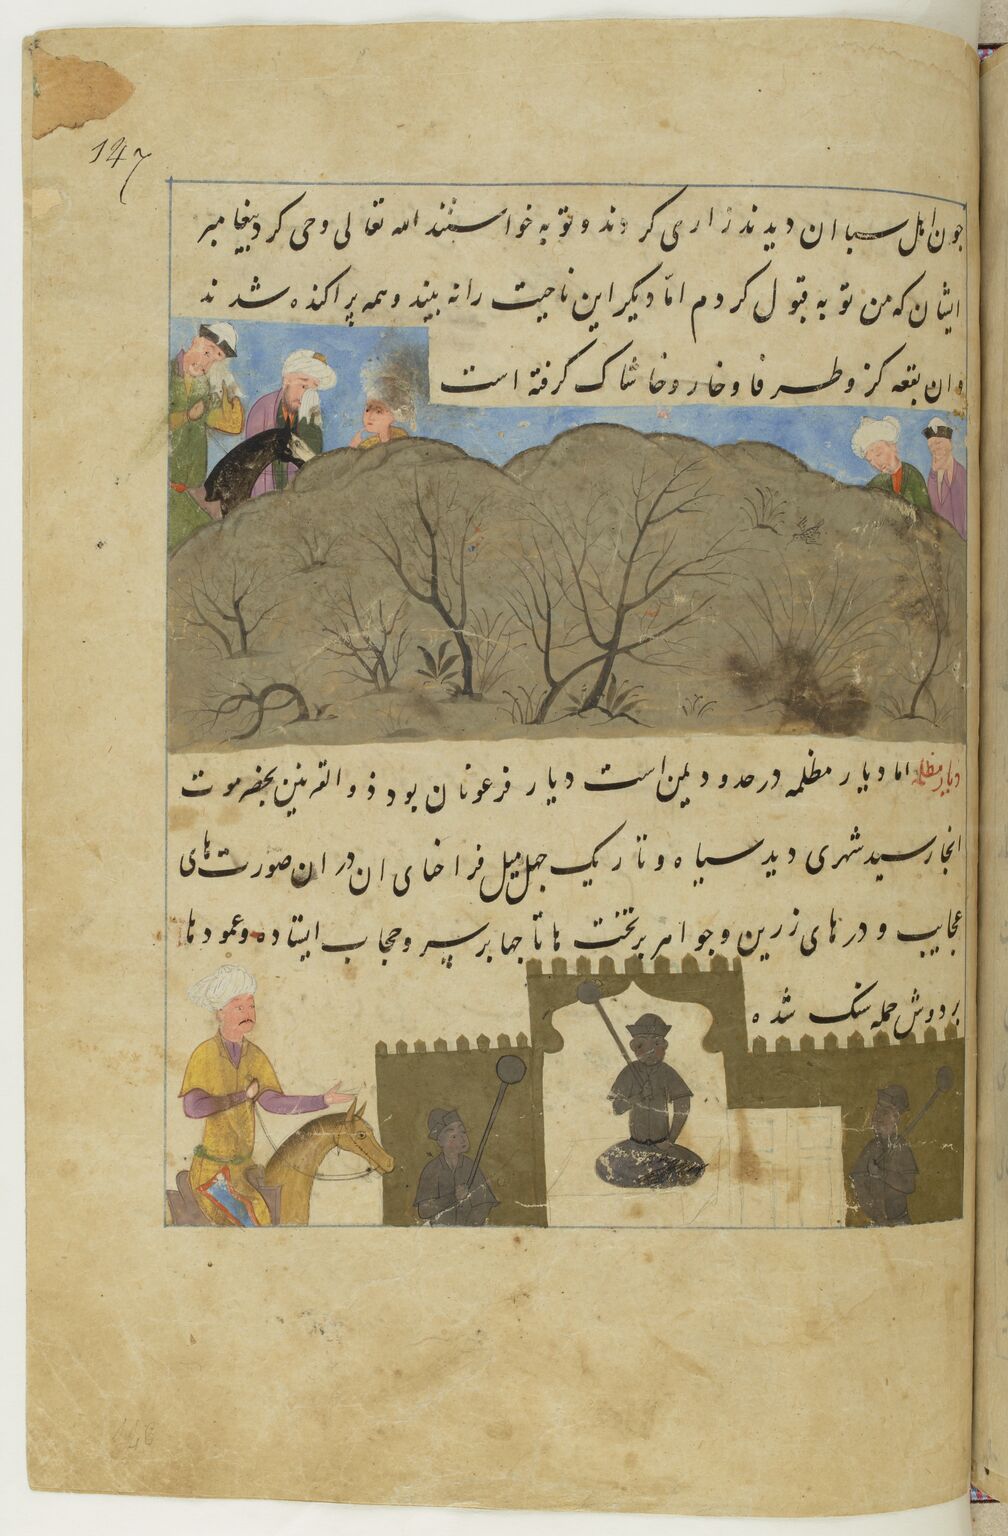 147
جون اهل سبا ان دیدند زاری کردند و توبه خواستند الله تعالی وحی کرد بپیغامبر
ایشان که من توبه قبول کردم امّا دیگر این ناحیت را نه بینید و همه پراکنده شدند
و ان بقعه کز و طرفا و خار و خاشاک گرفته است
دیار مظلمه اما دیار مظلمه در حدود یمن است دیار فرعونان بود ذو القرنین بحضرموت
انجا رسید شهری دید سیاه و تاریک جهل میل فراخای ان در ان صورت های
عجایب و در های زرین و جواهر بر تخت ها تاجها بر سر و حجاب ایستاده و عمودها
بر دوش جمله سنک شده